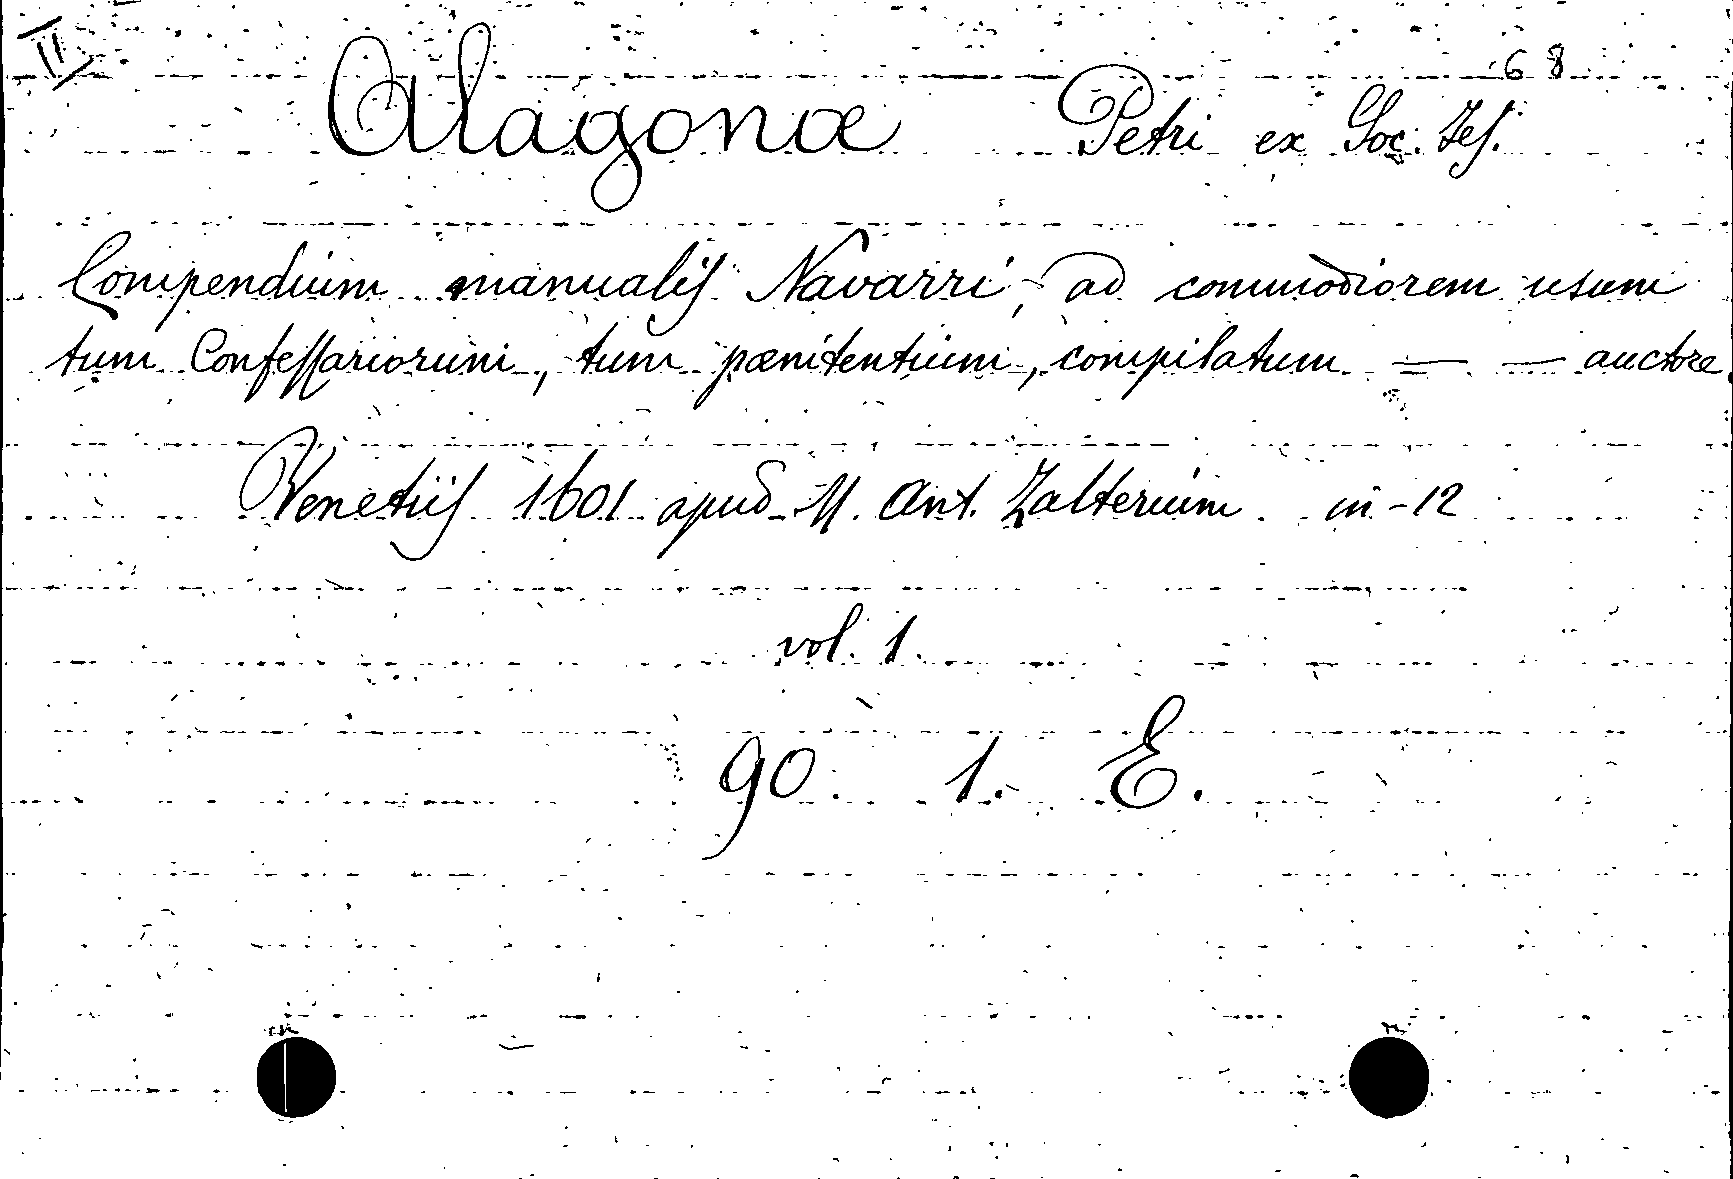 II
68
Alagonæ Petri ex Soc. Jes.
Compendium manualis Navarri, ad commodiorem usum
tum Confessariorum, tum pœnitentium, compilatum — — auctore
Venetiis 1601 apud M. Ant. Zalterium in-12
vol. 1.
90. 1. E.